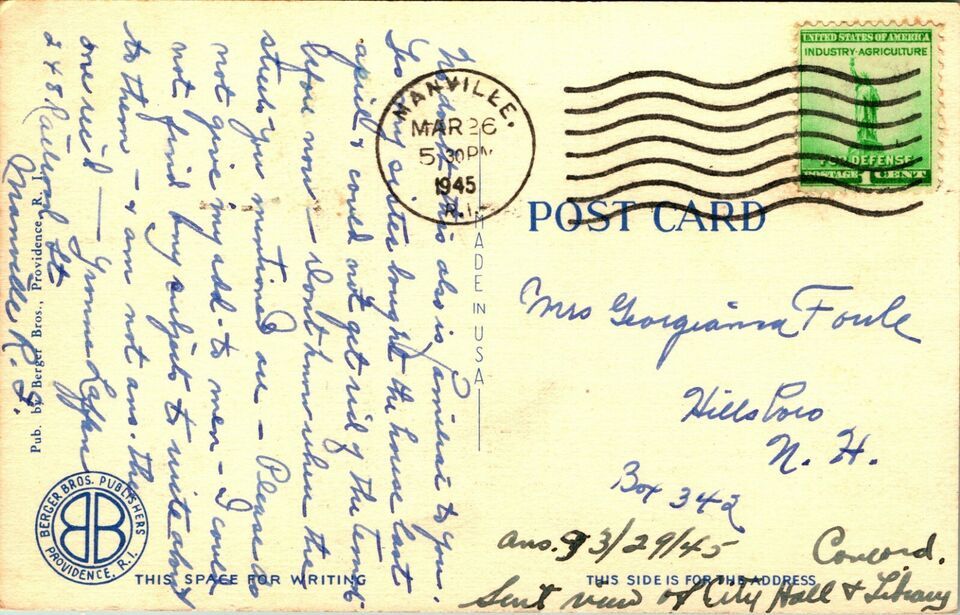 No doubt is also is familiar to you.
So my sister bought the house last
april & could not get rid of the tenants
before now – dont know where the
streets you mentioned are – Please do
not give my add- to men – I could
not find any subjects to write about
to them – & am not ans. the
one rec'd — Yvonne
248 Railroad St
Manville R. I.
Pub. by Berger Bros., Providence, R. I.
BERGER BROS. PUBLISHERS
PROVIDENCE, R.I.
BB
THIS SPACE FOR WRITING
MADE IN USA
MANVILLE.
MAR 26
5 30 PM
1945
R.I.
UNITED STATES OF AMERICA
INDUSTRY·AGRICULTURE
FOR DEFENSE
POSTAGE 1 CENT
POST CARD
Mrs Georgianna Fowle
Hillsboro
N. H.
Box 342
ans. 3/29/45 Concord.
Sent view of City Hall & Library
THIS SIDE IS FOR THE ADDRESS